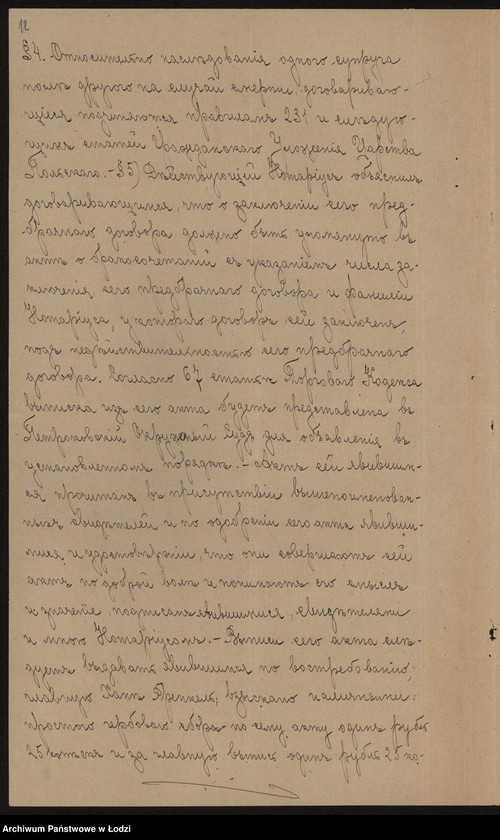 12
§4. Относительно наслѣдованія одного супруга
послѣ другого на случай смерти, договариваю-
щіеся подчиняются правиламъ 231 и слѣдую-
щихъ статей Гражданскаго Уложенія Царства
Польскаго. - §5) Дѣйствующій Нотаріусъ объяснилъ
договаривающимся, что о заключеніи сего пред-
брачнаго договора должно быть упомянуто въ
актѣ о бракосочетаніи съ указаніемъ числа за-
ключенія сего предбрачнаго договора и фамиліи
Нотаріуса, у котораго договоръ сей заключенъ,
подъ недѣйствительностью сего предбрачнаго
договора. Согласно 67 статьѣ Торговаго Кодекса
выписка изъ сего акта будетъ представлена въ
Петроковскій Окружный Судъ для объявленія въ
установленномъ порядкѣ. - Актъ сей явившим-
ся прочитанъ въ присутствіи вышепоименован-
ныхъ свидѣтелей и по одобреніи сего акта явивши-
мися и удостовѣреніи, что они совершаютъ сей
актъ по доброй волѣ и понимаютъ его смыслъ
и значеніе, подписанъ явившимися, свидѣтелями
и мною Нотаріусомъ. - Выписи сего акта слѣ-
дуетъ выдавать явившимся по востребованію,
главную Ханѣ Френкель, взыскано наличными:
простого гербоваго сбора по сему акту одинъ рубль
25 копѣекъ и за главную выпись одинъ рубль 25 ко-
Archiwum Państwowe w Łodzi